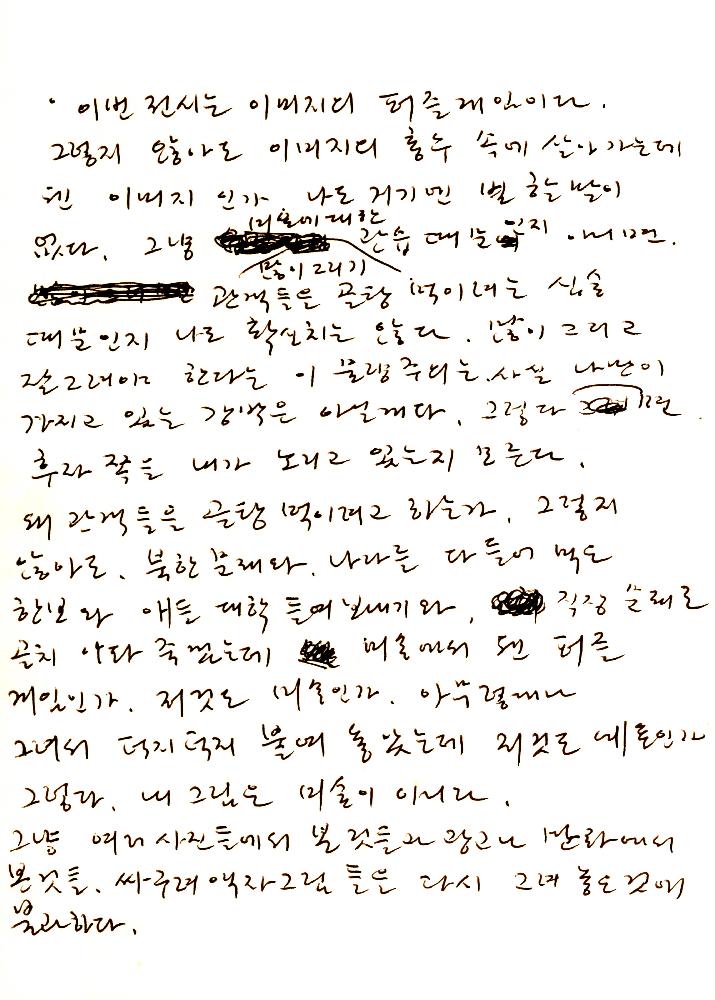 · 이번 전시는 이미지의 퍼즐게임이다.
그렇지 않아도 이미지의 홍수 속에 살아가는데
웬 이미지 인가 나도 거기엔 별 할말이
미술에 대한
없다. 그냥 관습 때문인지 아니면.
많이 그리기
관객들을 골탕 먹이려는 심술
때문인지 나도 확실치는 않다. 많이 그리고
잘그려야 한다는 이 물량주의는 사실 나만이
가지고 있는 강박은 아닐게다. 그렇다면
후자 쪽을 내가 노리고 있는지 모른다.
왜 관객들을 골탕 먹이려고 하는가. 그렇지
않아도. 북한문제와. 나라를 다 들어 먹은
한보와 애들 대학 들여보내기와, 직장 문제로
골치 아파 죽겠는데 미술에서 웬 퍼즐
게임인가. 저것도 미술인가. 아무렇게나
그려서 덕지덕지 붙여 놓았는데 저것도 예술인가
그렇다. 내 그림은 미술이 아니다.
그냥 여러 사진들에서 본 것들과 광고나 만화에서
본것들. 싸구려 액자그림 들을 다시 그려 놓은 것에
불과하다.